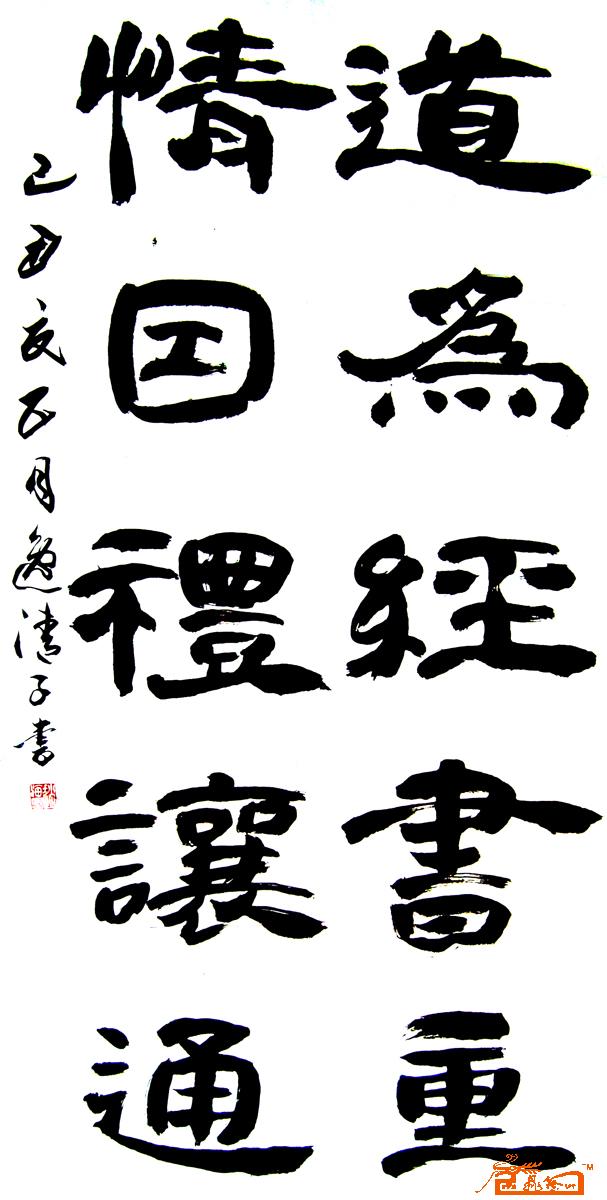 道為經書重
情因禮讓通
己丑年正月逸清子書